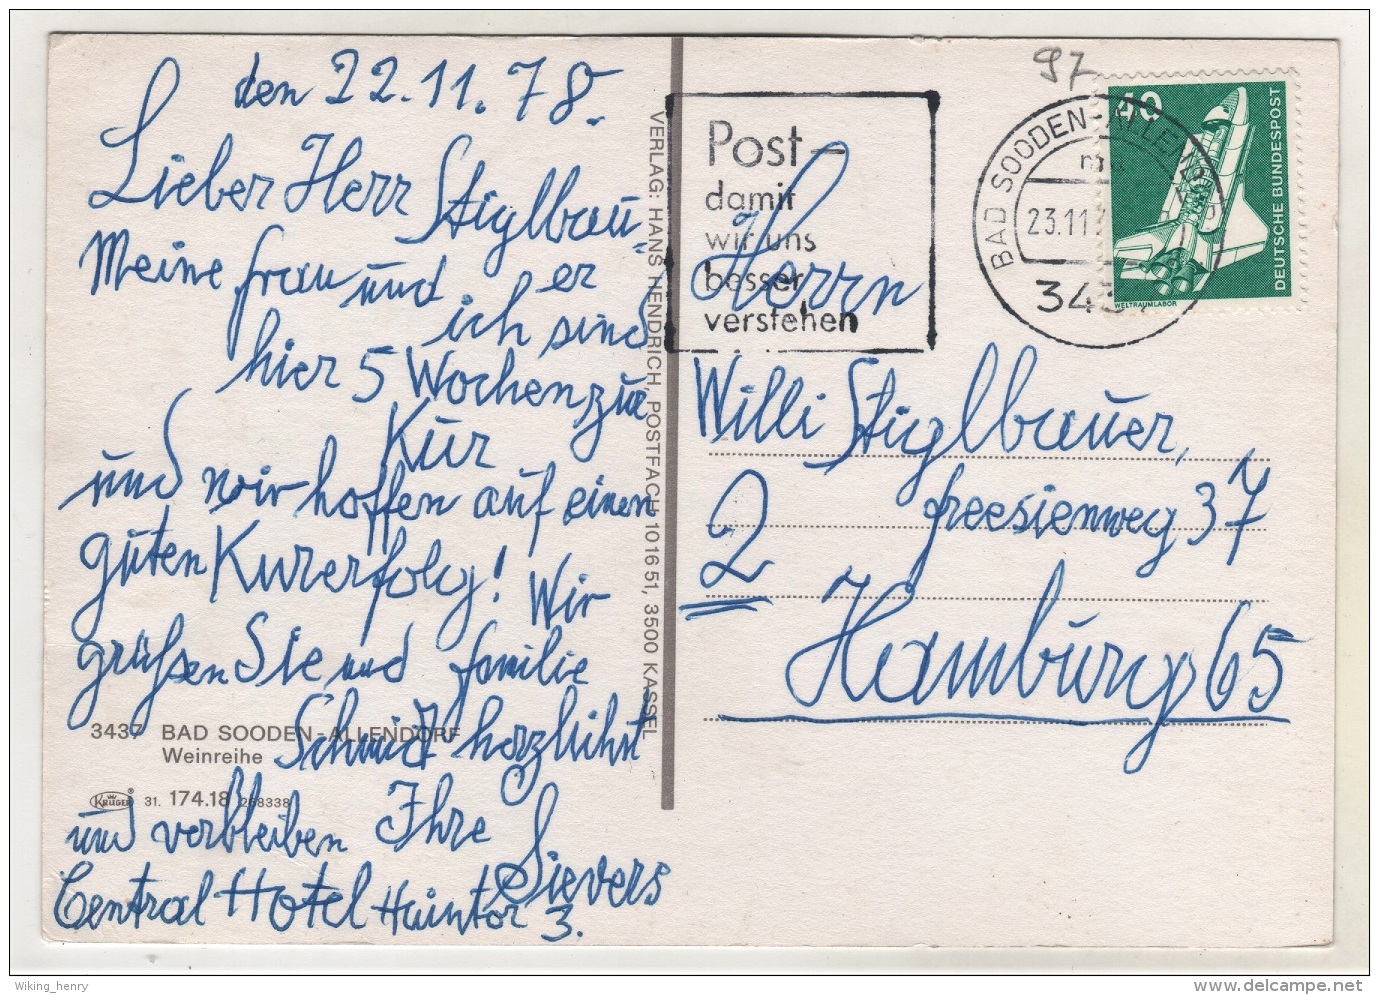 den 22.11.78.
Lieber Herr Stiglbau-
er
Meine Frau und ich sind
hier 5 Wochen zur
Kur
und wir hoffen auf einen
guten Kurerfolg! Wir
grüßen Sie und Familie
Schmidt herzlichst
und verbleiben Ihre Sievers
Central Hotel Haintor 3.
3437 BAD SOODEN-ALLENDORF
Weinreihe
KRÜGER 31. 174.18 268338
VERLAG: HANS HENDRICH, POSTFACH 101651, 3500 KASSEL
Post-
damit
wir uns
besser
verstehen
97
BAD SOODEN-ALLENDORF
23.11.7
343
40
DEUTSCHE BUNDESPOST
WELTRAUMLABOR
Herrn
Willi Stiglbauer,
Freesienweg 37
2
Hamburg 65
Wiking_henry
delcampe.net